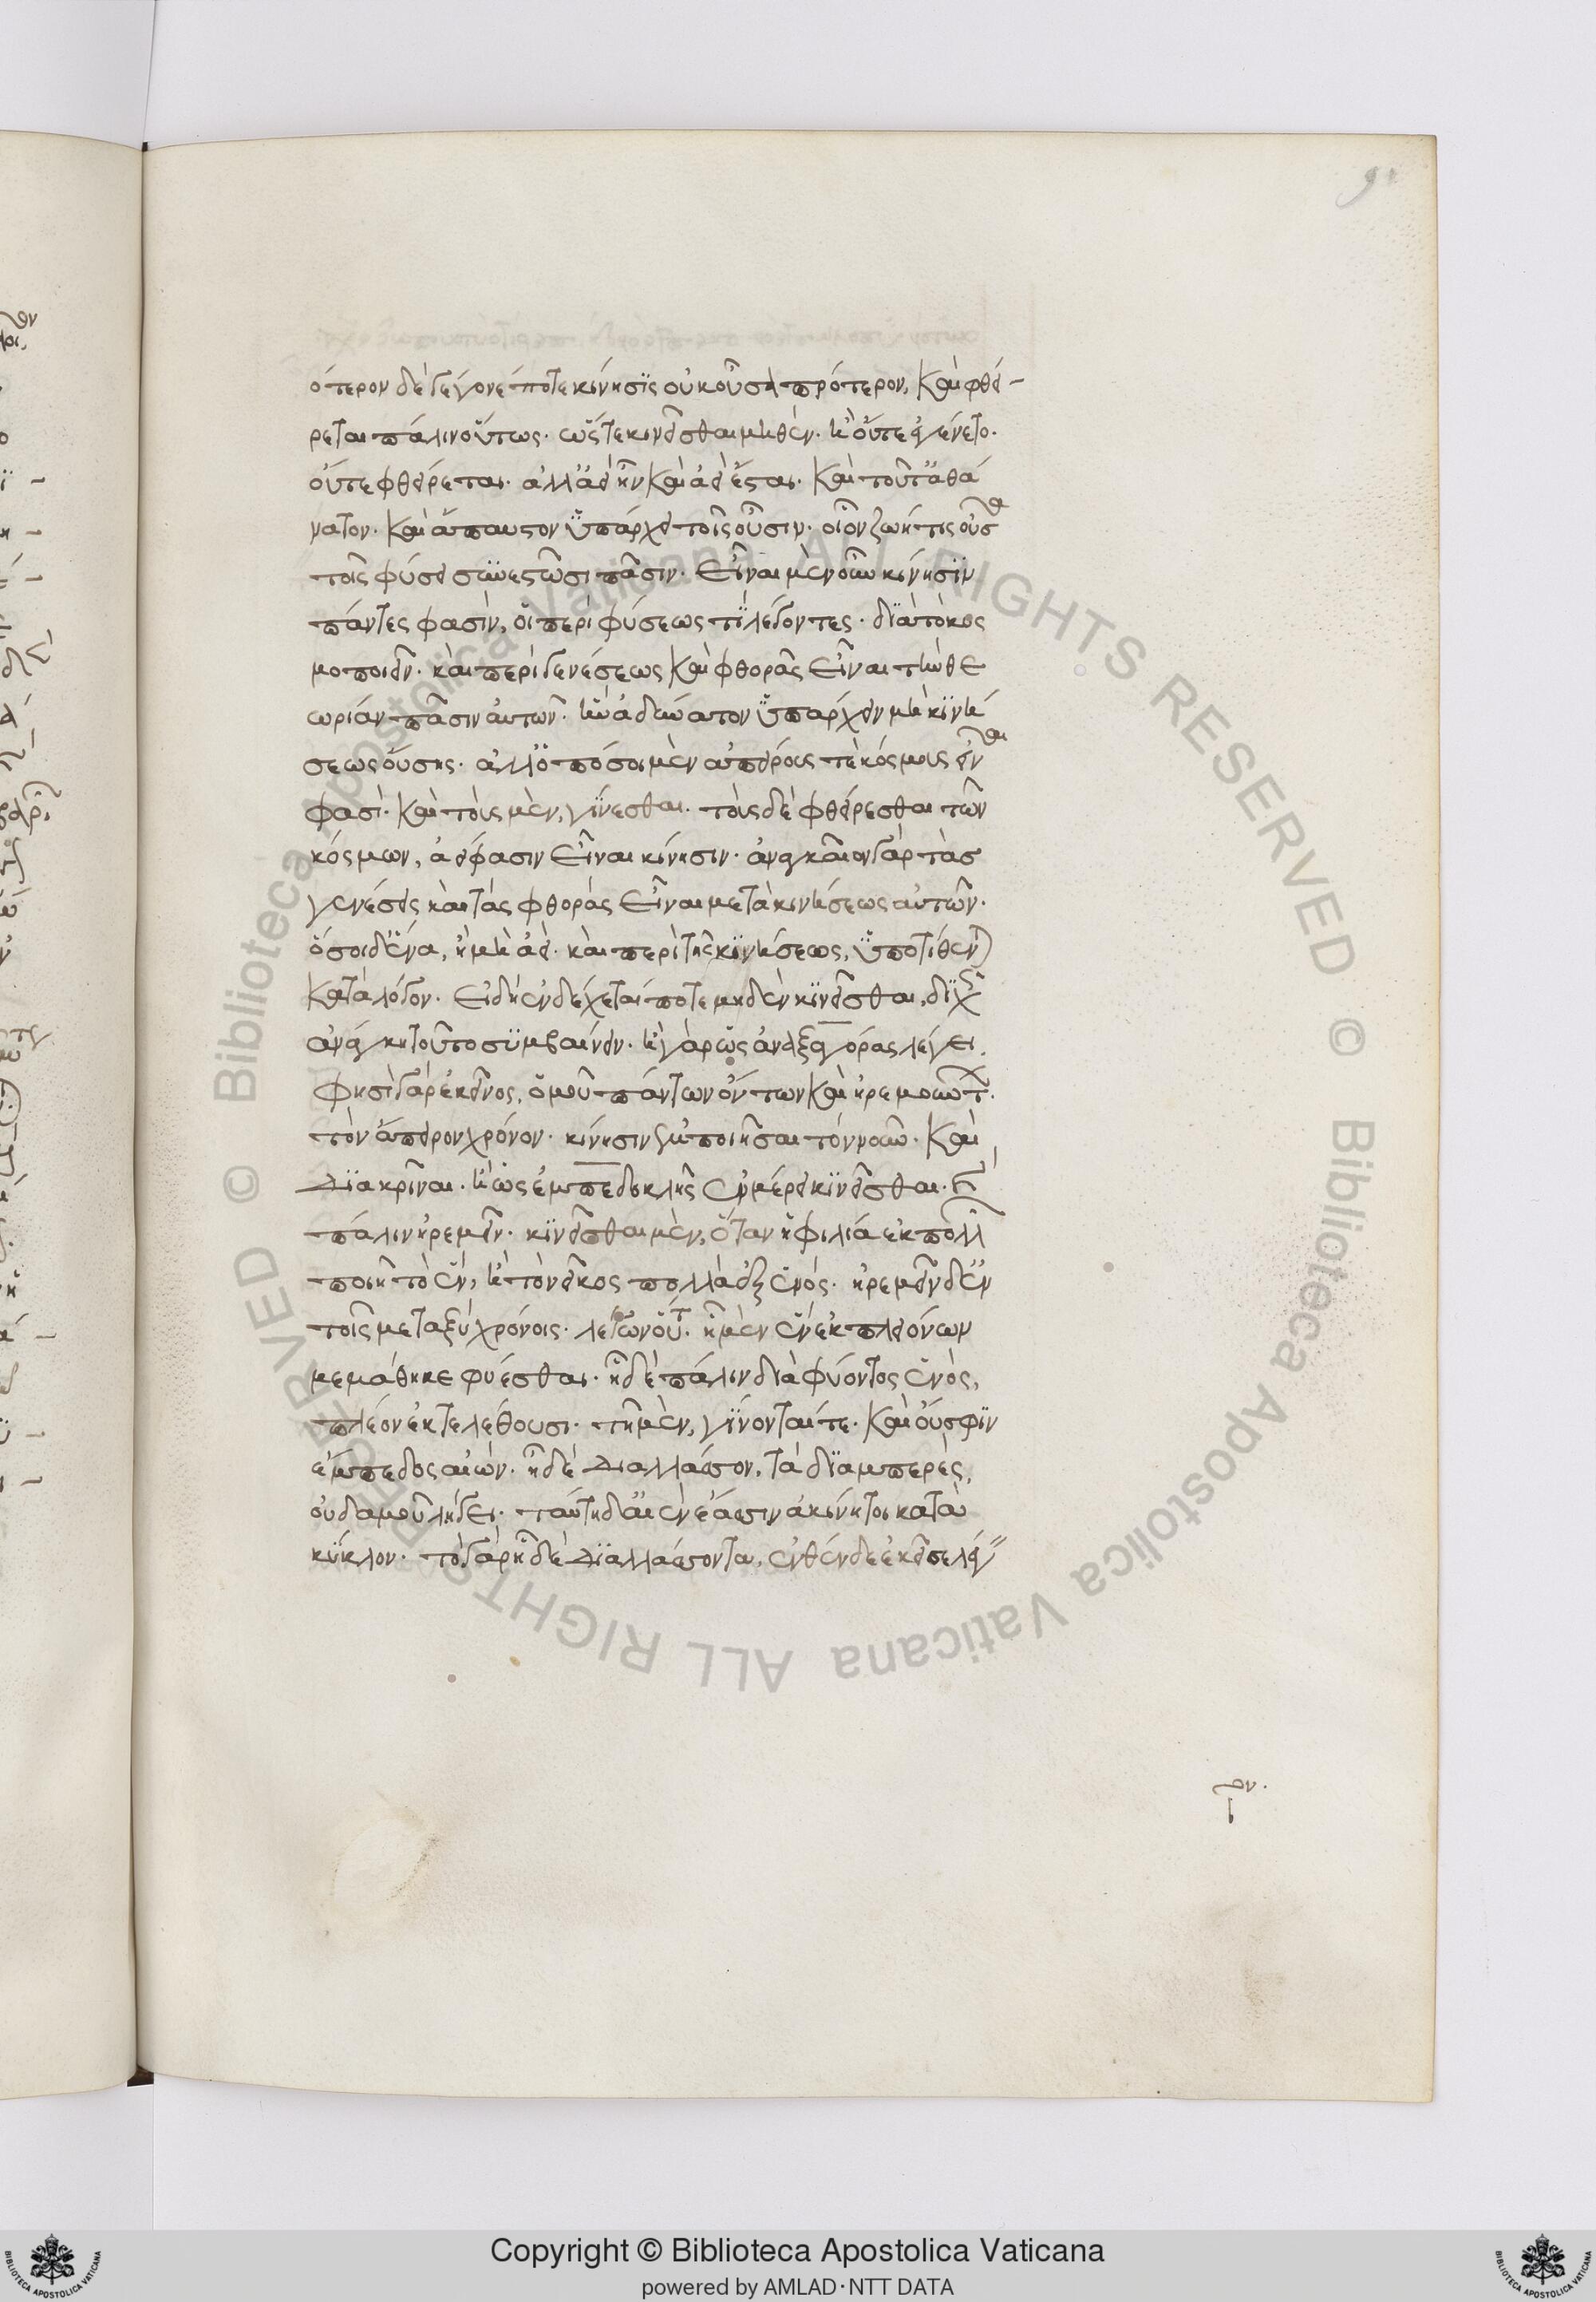 91
ότερον δὲ γέγονέ ποτε κίνησϊς οὐκ οὖσα πρότερον, καὶ φθεί-
ρεται πάλιν οὕτως. ὥστε κινεῖσθαι μηθέν. ἢ οὔτε ἐγένετο.
οὔτε φθείρεται. ἀλλ' ἀεὶ ἦν καὶ ἀεὶ ἔσται. καὶ τοῦτ' ἀθά
νατον. καὶ ἄπαυστον ὑπάρχει τοῖς οὖσιν. οἷον ζωή τις οὖσα
τοῖς φύσει συνεστῶσι πᾶσιν. εἶναι μὲν οὖν κίνησϊν
πάντες φασὶν, οἱ περὶ φύσεώς τϊ λέγοντες. δϊὰ τὸ κοσ
μοποιεῖν. καὶ περὶ γενέσεως καὶ φθορᾶς εἶναι τὴν θε
ωρίαν πᾶσιν αὐτῶν. ἣν ἀδύνατον ὑπάρχειν μὴ κϊνή
σεως οὔσης. ἀλλ' ὁπόσοι μὲν ἀπείρους τε κόσμους εἶναι
φασὶ. καὶ τοὺς μὲν, γίνεσθαι. τοὺς δὲ φθείρεσθαι τῶν
κόσμων, ἀεί φασιν εἶναι κίνησιν. ἀναγκαῖον γὰρ τὰς
γενέσεις καὶ τὰς φθορὰς εἶναι μετὰ κινήσεως αὐτῶν.
ὅσοι δ' ἕνα, ἢ μὴ ἀεὶ. καὶ περὶ τῆς κϊνήσεως, ὑποτίθενται
κατὰ λόγον. εἰ δὴ ἐνδέχεταί ποτε μηδὲν κϊνεῖσθαι, δϊχῶς
ἀνάγκη τοῦτο συμβαίνειν. ἢ γὰρ ὡς ἀναξαγόρας λέγει.
φησὶ γὰρ ἐκεῖνος, ὁμοῦ πάντων ὄντων καὶ ἠρεμούντων
τὸν ἄπειρον χρόνον. κίνησιν ἐμποιῆσαι τὸν νοῦν. καὶ
διακρῖναι. ἢ ὡς ἐμπεδοκλῆς ἐν μέρει κϊνεῖσθαι. καὶ
πάλιν ἠρεμεῖν. κϊνεῖσθαι μὲν, ὅταν ἡ φιλία ἐκ πολλῶν
ποιῆ τὸ ἓν, ἢ τὸ νεῖκος πολλὰ ἐξ ἑνός. ἠρεμεῖν δ' ἐν
τοῖς μεταξὺ χρόνοις. λέγων οὕτως. ἧ μὲν ἓν ἐκ πλεόνων
μεμάθηκε φυέσθαι. ἠδὲ πάλιν διαφύοντος ἑνὸς,
πλέον ἐκτελέθουσι. τῆ μὲν, γϊνονταί τε. καὶ οὔ σφϊν
ἔμπεδος αἰών. ἧ δὲ διαλλάσσον, τὰ δϊαμπερὲς,
οὐδαμοῦ λήγει. ταύτη δ' αἰὲν ἔασιν ἀκίνητοι κατὰ
κύκλον. τὸ γὰρ ἧ δὲ διαλλάσσοντα, ἐνθένδε ἐκεῖσε λέγειν